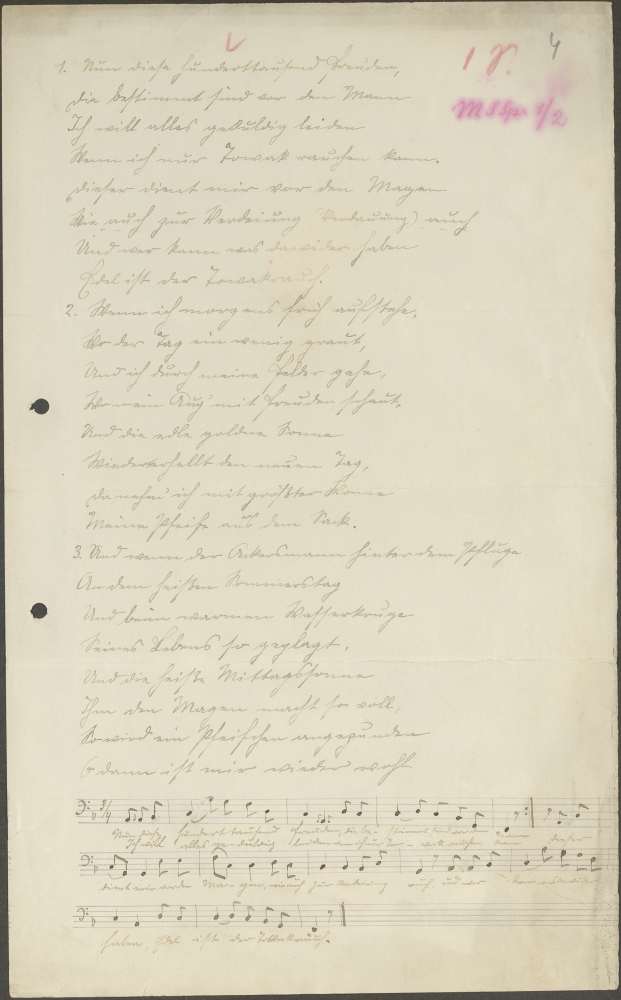 4
1. Nun diese hunderttausend Freuden,
die bestimmt sind vor den Mann
Ich will alles geduldig leiden
Wenn ich nur Towak rauchen kann.
dieser dient mir vor den Magen
Wie auch zur Verdeiung (Verdauung) auch
Und wer kann was dawider haben
Edel ist der Towakrauch.
2. Wenn ich morgens früh aufstehe,
Wo der Tag ein wenig graut,
Und ich durch meine Felder gehe,
Wo mein Aug' mit Freuden schaut,
Und die edle goldne Sonne
Wieder erhellt den neuen Tag,
da nehm' ich mit größter Wonne
Meine Pfeife aus dem Sack.
3. Und wenn der Ackersmann hinter dem Pfluge
An dem heißen Sommerstag
Und beim warmen Wasserkruge
Seines Lebens so geplagt,
Und die heiße Mittagssonne
Ihm den Magen macht so voll,
So wird ein Pfeifchen angezunden
dann ist mir wieder wohl
3/4
Nun diese hundert tausend Freuden, die be- stimmt sind vor Mann dieser
Ich will alles ge-duldig leiden wenn ich nur To- wak rauchen kann
dient mir vor den Ma- gen, wie auch zur auch, und wer kann was dawider
haben, Edel ist der Towakrauch.